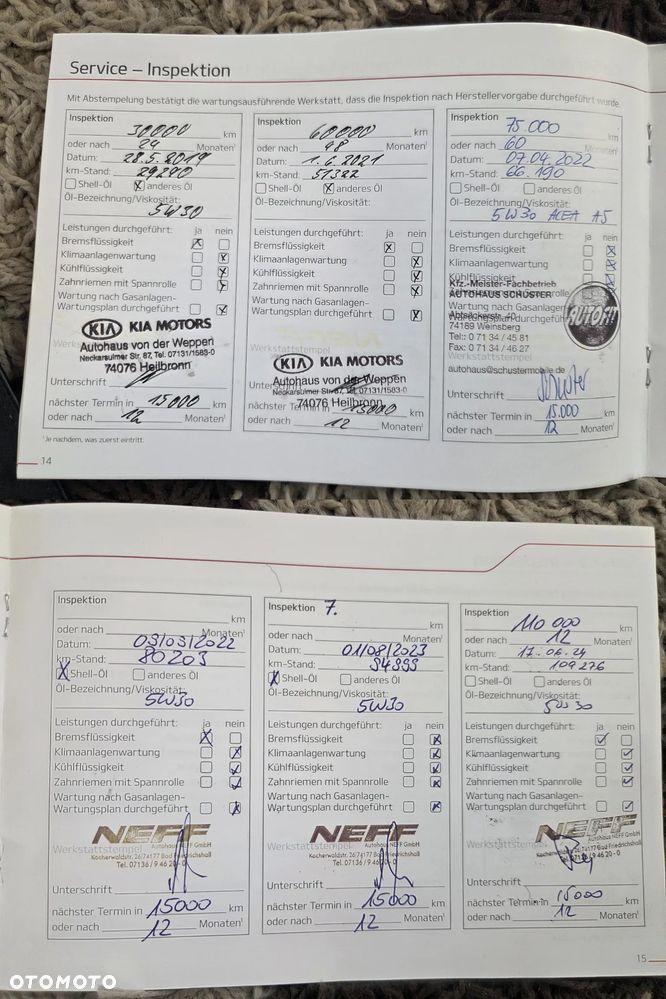 Service – Inspektion
Mit Abstempelung bestätigt die wartungsausführende Werkstatt, dass die Inspektion nach Herstellervorgabe durchgeführt wurde.
Inspektion
30000 km
oder nach 24 Monaten¹
Datum: 28.5.2019
km-Stand: 29290
Shell-Öl X anderes Öl
Öl-Bezeichnung/Viskosität:
5W30
Leistungen durchgeführt: ja nein
Bremsflüssigkeit
Klimaanlagenwartung
Kühlflüssigkeit
Zahnriemen mit Spannrolle
Wartung nach Gasanlagen-
Wartungsplan durchgeführt
KIA KIA MOTORS
Autohaus von der Weppen
Neckarsulmer Str. 87, Tel. 07131/1583-0
74076 Heilbronn
Unterschrift
nächster Termin in 15000 km
oder nach 12 Monaten¹
Inspektion
60000 km
oder nach 48 Monaten¹
Datum: 1.6.2021
km-Stand: 51322
Shell-Öl X anderes Öl
Öl-Bezeichnung/Viskosität:
Leistungen durchgeführt: ja nein
Bremsflüssigkeit
Klimaanlagenwartung
Kühlflüssigkeit
Zahnriemen mit Spannrolle
Wartung nach Gasanlagen-
Wartungsplan durchgeführt
Werkstattstempel
KIA KIA MOTORS
Autohaus von der Weppen
Neckarsulmer Str. 87, Tel. 07131/1583-0
74076 Heilbronn
Unterschrift
nächster Termin in 15000 km
oder nach 12 Monaten¹
Inspektion
75.000 km
oder nach 60 Monaten¹
Datum: 07.04.2022
km-Stand: 66.190
Shell-Öl anderes Öl
Öl-Bezeichnung/Viskosität:
5W30 ACEA A5
Leistungen durchgeführt: ja nein
Bremsflüssigkeit
Klimaanlagenwartung
Kühlflüssigkeit
Kfz.-Meister-Fachbetrieb
AUTOHAUS SCHUSTER
74189 Weinsberg
Tel.: 0 71 34 / 45 81
Fax: 0 71 34 / 46 27
Werkstattstempel
autohaus@schustermobile.de
AUTOFIT
Unterschrift Schuster
nächster Termin in 15.000 km
oder nach 12 Monaten¹
¹Je nachdem, was zuerst eintritt.
14
Inspektion
km
oder nach Monaten¹
Datum: 03/03/2022
km-Stand: 80203
X Shell-Öl anderes Öl
Öl-Bezeichnung/Viskosität:
5W30
Leistungen durchgeführt: ja nein
Bremsflüssigkeit
Klimaanlagenwartung
Kühlflüssigkeit
Zahnriemen mit Spannrolle
Wartung nach Gasanlagen-
Wartungsplan durchgeführt
NEFF
Werkstattstempel Autohaus NEFF GmbH
Kocherwaldstr. 26/74177 Bad Friedrichshall
Tel. 07136 / 9 46 20 - 0
Unterschrift
nächster Termin in 15000 km
oder nach 12 Monaten¹
Inspektion 7.
km
oder nach Monaten¹
Datum: 01/08/2023
km-Stand: 94999
X Shell-Öl anderes Öl
Öl-Bezeichnung/Viskosität:
5W30
Leistungen durchgeführt: ja nein
Bremsflüssigkeit
Klimaanlagenwartung
Kühlflüssigkeit
Zahnriemen mit Spannrolle
Wartung nach Gasanlagen-
Wartungsplan durchgeführt
NEFF
Werkstattstempel Autohaus NEFF GmbH
Kocherwaldstr. 26/74177 Bad Friedrichshall
Tel. 07136 / 9 46 20 - 0
Unterschrift
nächster Termin in 15000 km
oder nach 12 Monaten¹
Inspektion
110 000 km
oder nach 12 Monaten¹
Datum: 17.06.24
km-Stand: 109276
Shell-Öl anderes Öl
Öl-Bezeichnung/Viskosität:
5W30
Leistungen durchgeführt: ja nein
Bremsflüssigkeit
Klimaanlagenwartung
Kühlflüssigkeit
Zahnriemen mit Spannrolle
Wartung nach Gasanlagen-
Wartungsplan durchgeführt
NEFF
Werkstattstempel Autohaus NEFF GmbH
Kocherwaldstr. 26/74177 Bad Friedrichshall
Tel. 07136 / 9 46 20 - 0
Unterschrift
nächster Termin in 15000 km
oder nach 12 Monaten¹
15
OTOMOTO